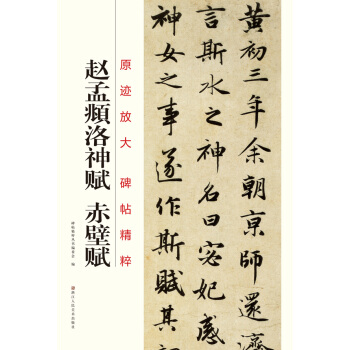 黄初三年余朝京師還濟
言斯水之神名曰宓妃感
神女之事遂作斯賦其
原迹放大 碑帖精粹
赵孟頫洛神赋 赤壁赋
浙江人民美术出版社